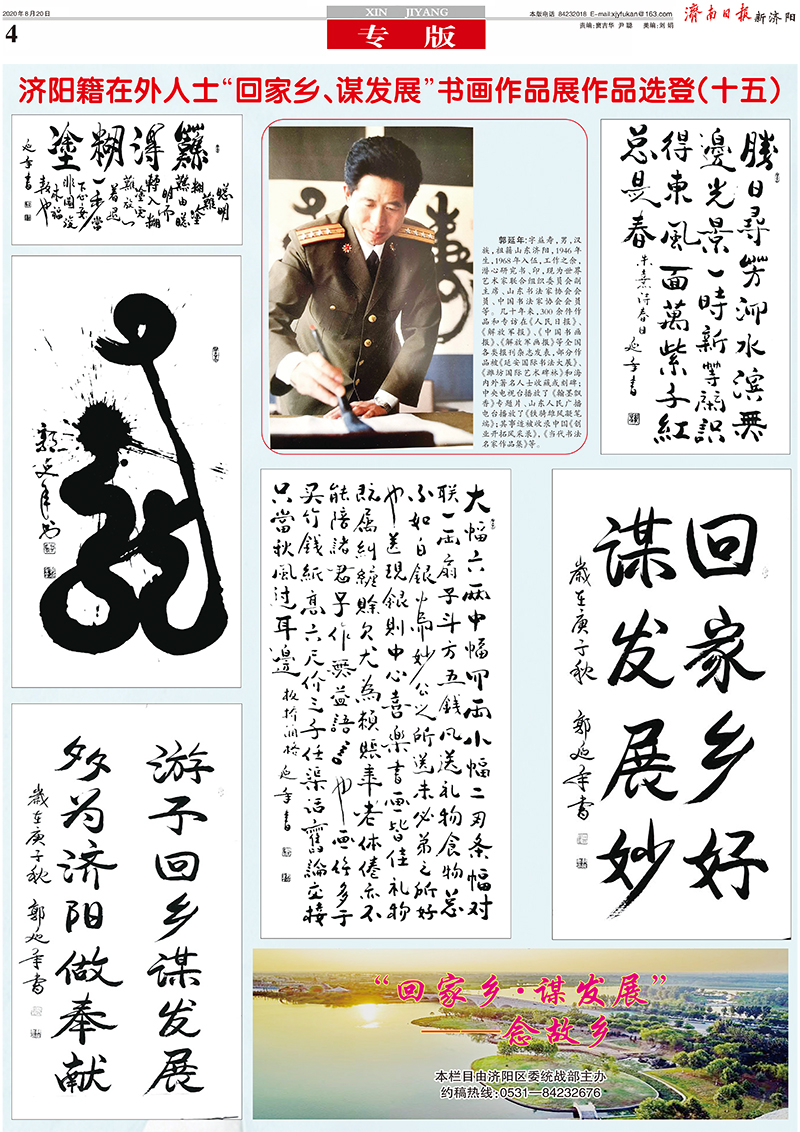 2020年8月20日
4
XIN JIYANG
专 版
本版电话 84232018 E-mail:xjyfukan@163.com
济南日报 新济阳
济阳籍在外人士“回家乡、谋发展”书画作品展作品选登(十五)
難得糊塗
聰明難
糊塗難
延年書
郭延年:字益寿,男,汉
族,祖籍山东济阳,1946年
生,1968年入伍,工作之余,
潜心研究书、印,现为世界
艺术家联合组织委员会副
主席、山东书法家协会会
员、中国书法家协会会员
等。几十年来,300余件作
品和专访在《人民日报》、
《解放军报》、《中国书画
报》、《解放军画报》等全国
各类报刊杂志发表,部分作
品被《延安国际书法大展》、
《潍坊国际艺术碑林》和海
内外著名人士收藏或刻碑;
中央电视台播放了《翰墨飘
香》专题片、山东人民广播
电台播放了《铁骑雄风凝笔
端》;其事迹被收录中国《创
业开拓风采录》,《当代书法
名家作品集》等。
勝日尋芳泗水濱無
邊光景一時新等閑識
得東風面萬紫千紅
总是春
朱熹诗春日 延年書
大幅六兩中幅四兩小幅二兩条幅对
联一兩扇子斗方五錢凡送礼物食物总
不如白銀为妙公之所送未必弟之所好
也送現銀則中心喜樂書画皆佳礼物
既属糾纏賒欠尤為賴賬年老体倦亦不
能陪諸君子作無益語言也画竹多于
买竹錢紙高六尺价三千任渠話舊論交接
只當秋風过耳邊
板桥润格 延年書
回家乡好
谋发展妙
歲在庚子秋 郭延年書
游子回乡谋发展
多为济阳做奉献
歲在庚子秋 郭延年書
“回家乡·谋发展”
——念故乡
本栏目由济阳区委统战部主办
约稿热线:0531—84232676